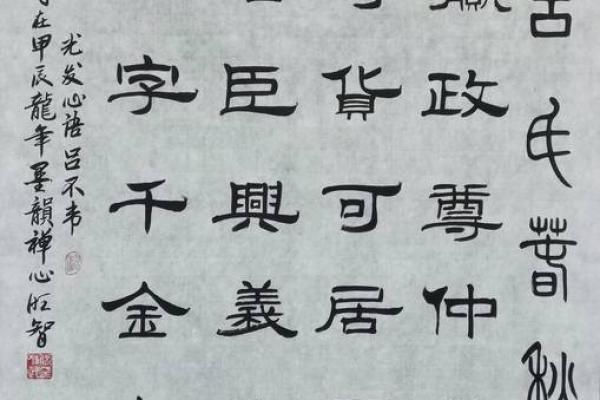 吕氏春秋
政尊仲
貨可居
臣興義
字千金
光发心语吕不韦
在甲辰龍年墨韻禅心旺智